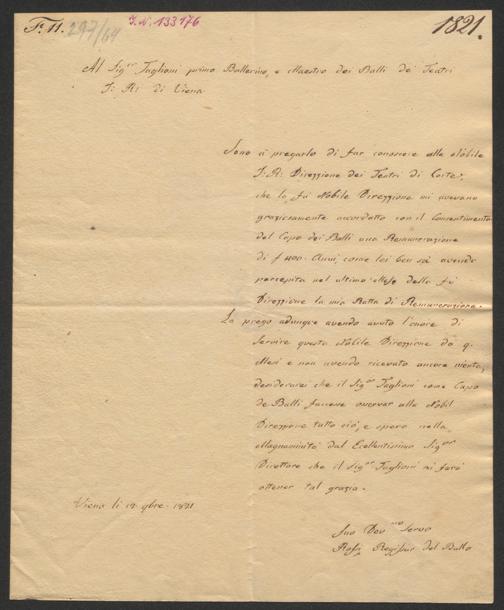 F: 11. 297/64 I. N. 133176 1821.
Al Sig:or Taglioni primo Ballerino, e Maestro dei Balli de' Teatri
I: R: di Viena
Sono a pregarlo di far conoscere alla Nobile
I: R: Direzzione dei Teatri di Corte,
che la fù Nobile Direzzione mi avevano
graziosamente accordatto con il Consentimento
del Capo dei Balli una Remunerazione
di f 400. Anui, come lei ben sà avendo
percepita nel ultimo Mese della fù
Direzzione la mia Ratta di Remunerazione.
La prego adunque avendo avuto l'onore di
Servire questa Nobile Direzzione da 9.
Mesi e non avendo ricevuto ancora niente,
desiderarei che il Sig:or Taglioni come Capo
de Balli facesse osservar alla Nobil
Direzzione tutto ciò, e spero nella
Magnanimità dal Ecellentissimo Sig:or
Direttore che il Sig:or Taglioni mi farà
ottener tal grazia.
Viena li 12. 9bre. 1821
Suo Dev:mo Servo
Regissur del Ballo